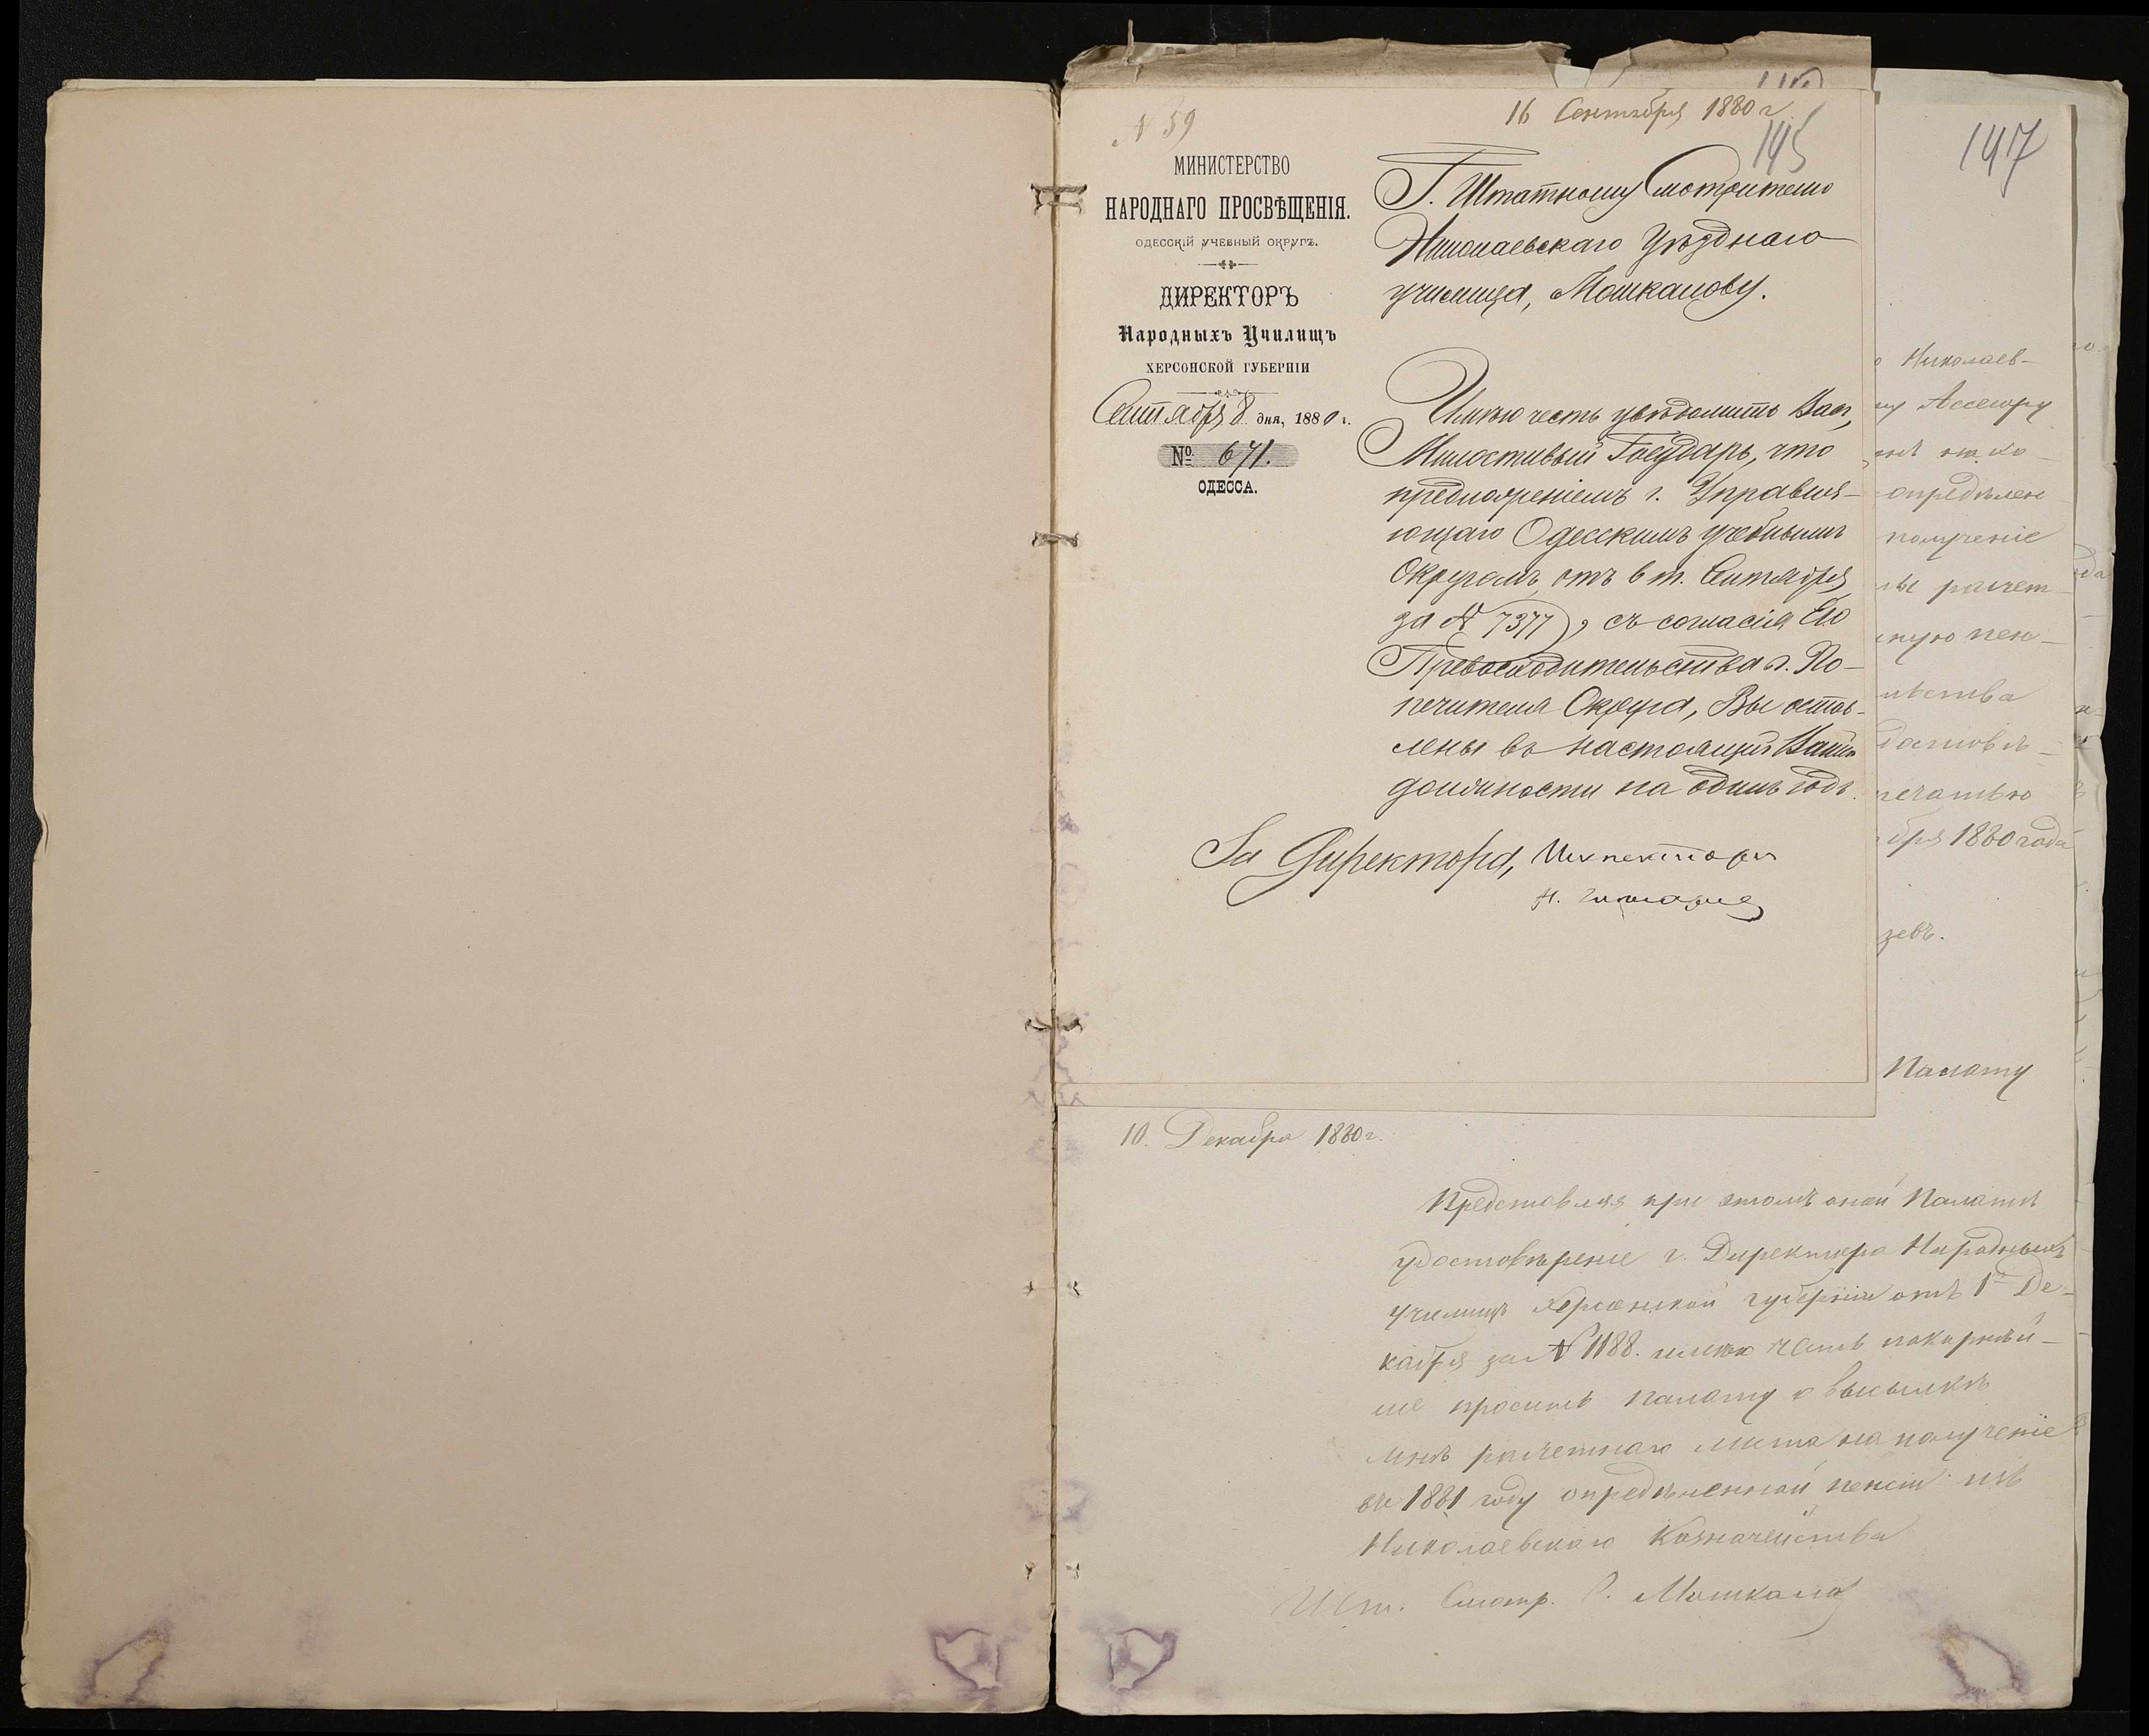 № 59
16 Сентября 1880 г.
145
147
МИНИСТЕРСТВО
НАРОДНАГО ПРОСВѢЩЕНІЯ.
ОДЕССКІЙ УЧЕБНЫЙ ОКРУГЪ.
ДИРЕКТОРЪ
Народныхъ Училищъ
ХЕРСОНСКОЙ ГУБЕРНІИ
Сентября 8 дня, 1880 г.
№ 671.
ОДЕССА.
Г. Штатному Смотрителю
Николаевскаго Уѣзднаго
училища, Машкалову.
Имѣю честь увѣдомить Васъ,
Милостивый Государь, что
предложеніемъ г. Управля-
ющаго Одесскимъ учебнымъ
Округомъ, отъ 6 т. Сентября
за № 7377, съ согласія Его
Превосходительства г. По-
печителя Округа, Вы остав-
лены въ настоящей Вашей
должности на одинъ годъ.
За Директора, Инспекторъ
Николаев-
Ассесору
опредѣлен
получение
расчет
пен-
печатью
1880 года
зевъ.
Палату
10. Декабря 1880 г.
Представляя при этомъ оной Палатѣ
удостовѣреніе г. Директора Народныхъ
училищъ Херсонской губерніи отъ 1го Де-
кабря за № 1188. имѣю честь покорнѣй-
ше просить Палату о высылкѣ
мнѣ расчетнаго листа на полученіе
въ 1881 году опредѣленной пенсіи изъ
Николаевскаго Казначейства
Шт. Смотр. С. Машкалов